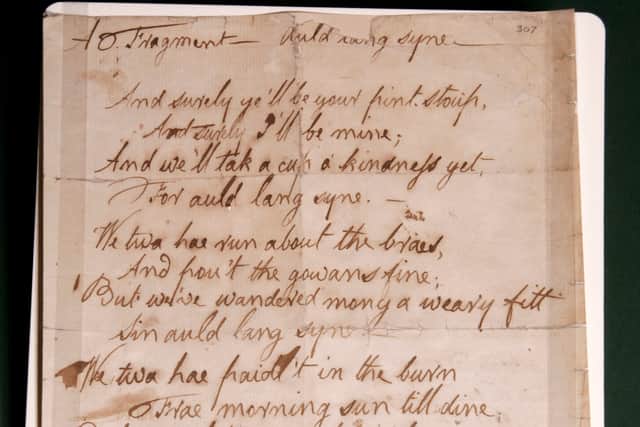 A Fragment — Auld lang syne —
307
And surely ye'll be your pint-stoup,
And surely I'll be mine;
And we'll tak a cup o' kindneſs yet,
For auld lang syne. —
We twa hae run about the braes,
And pou't the gowans fine;
But we've wandered mony a weary fitt
Sin auld lang syne
We twa hae paidl't in the burn
Frae morning sun till dine